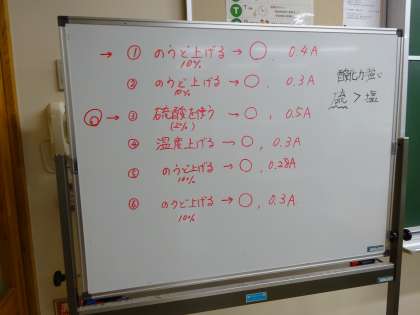 → ① のうど上げる → ○ 0.4A
10%
② のうど上げる → ○, 0.3A
10%
◎ → ③ 硫酸を使う → ○, 0.5A
(2%)
④ 温度上げる → ○, 0.3A
⑤ のうど上げる → ○, 0.28A
10%
⑥ のうど上げる → ○, 0.3A
10%
酸化力強い
硫 > 塩